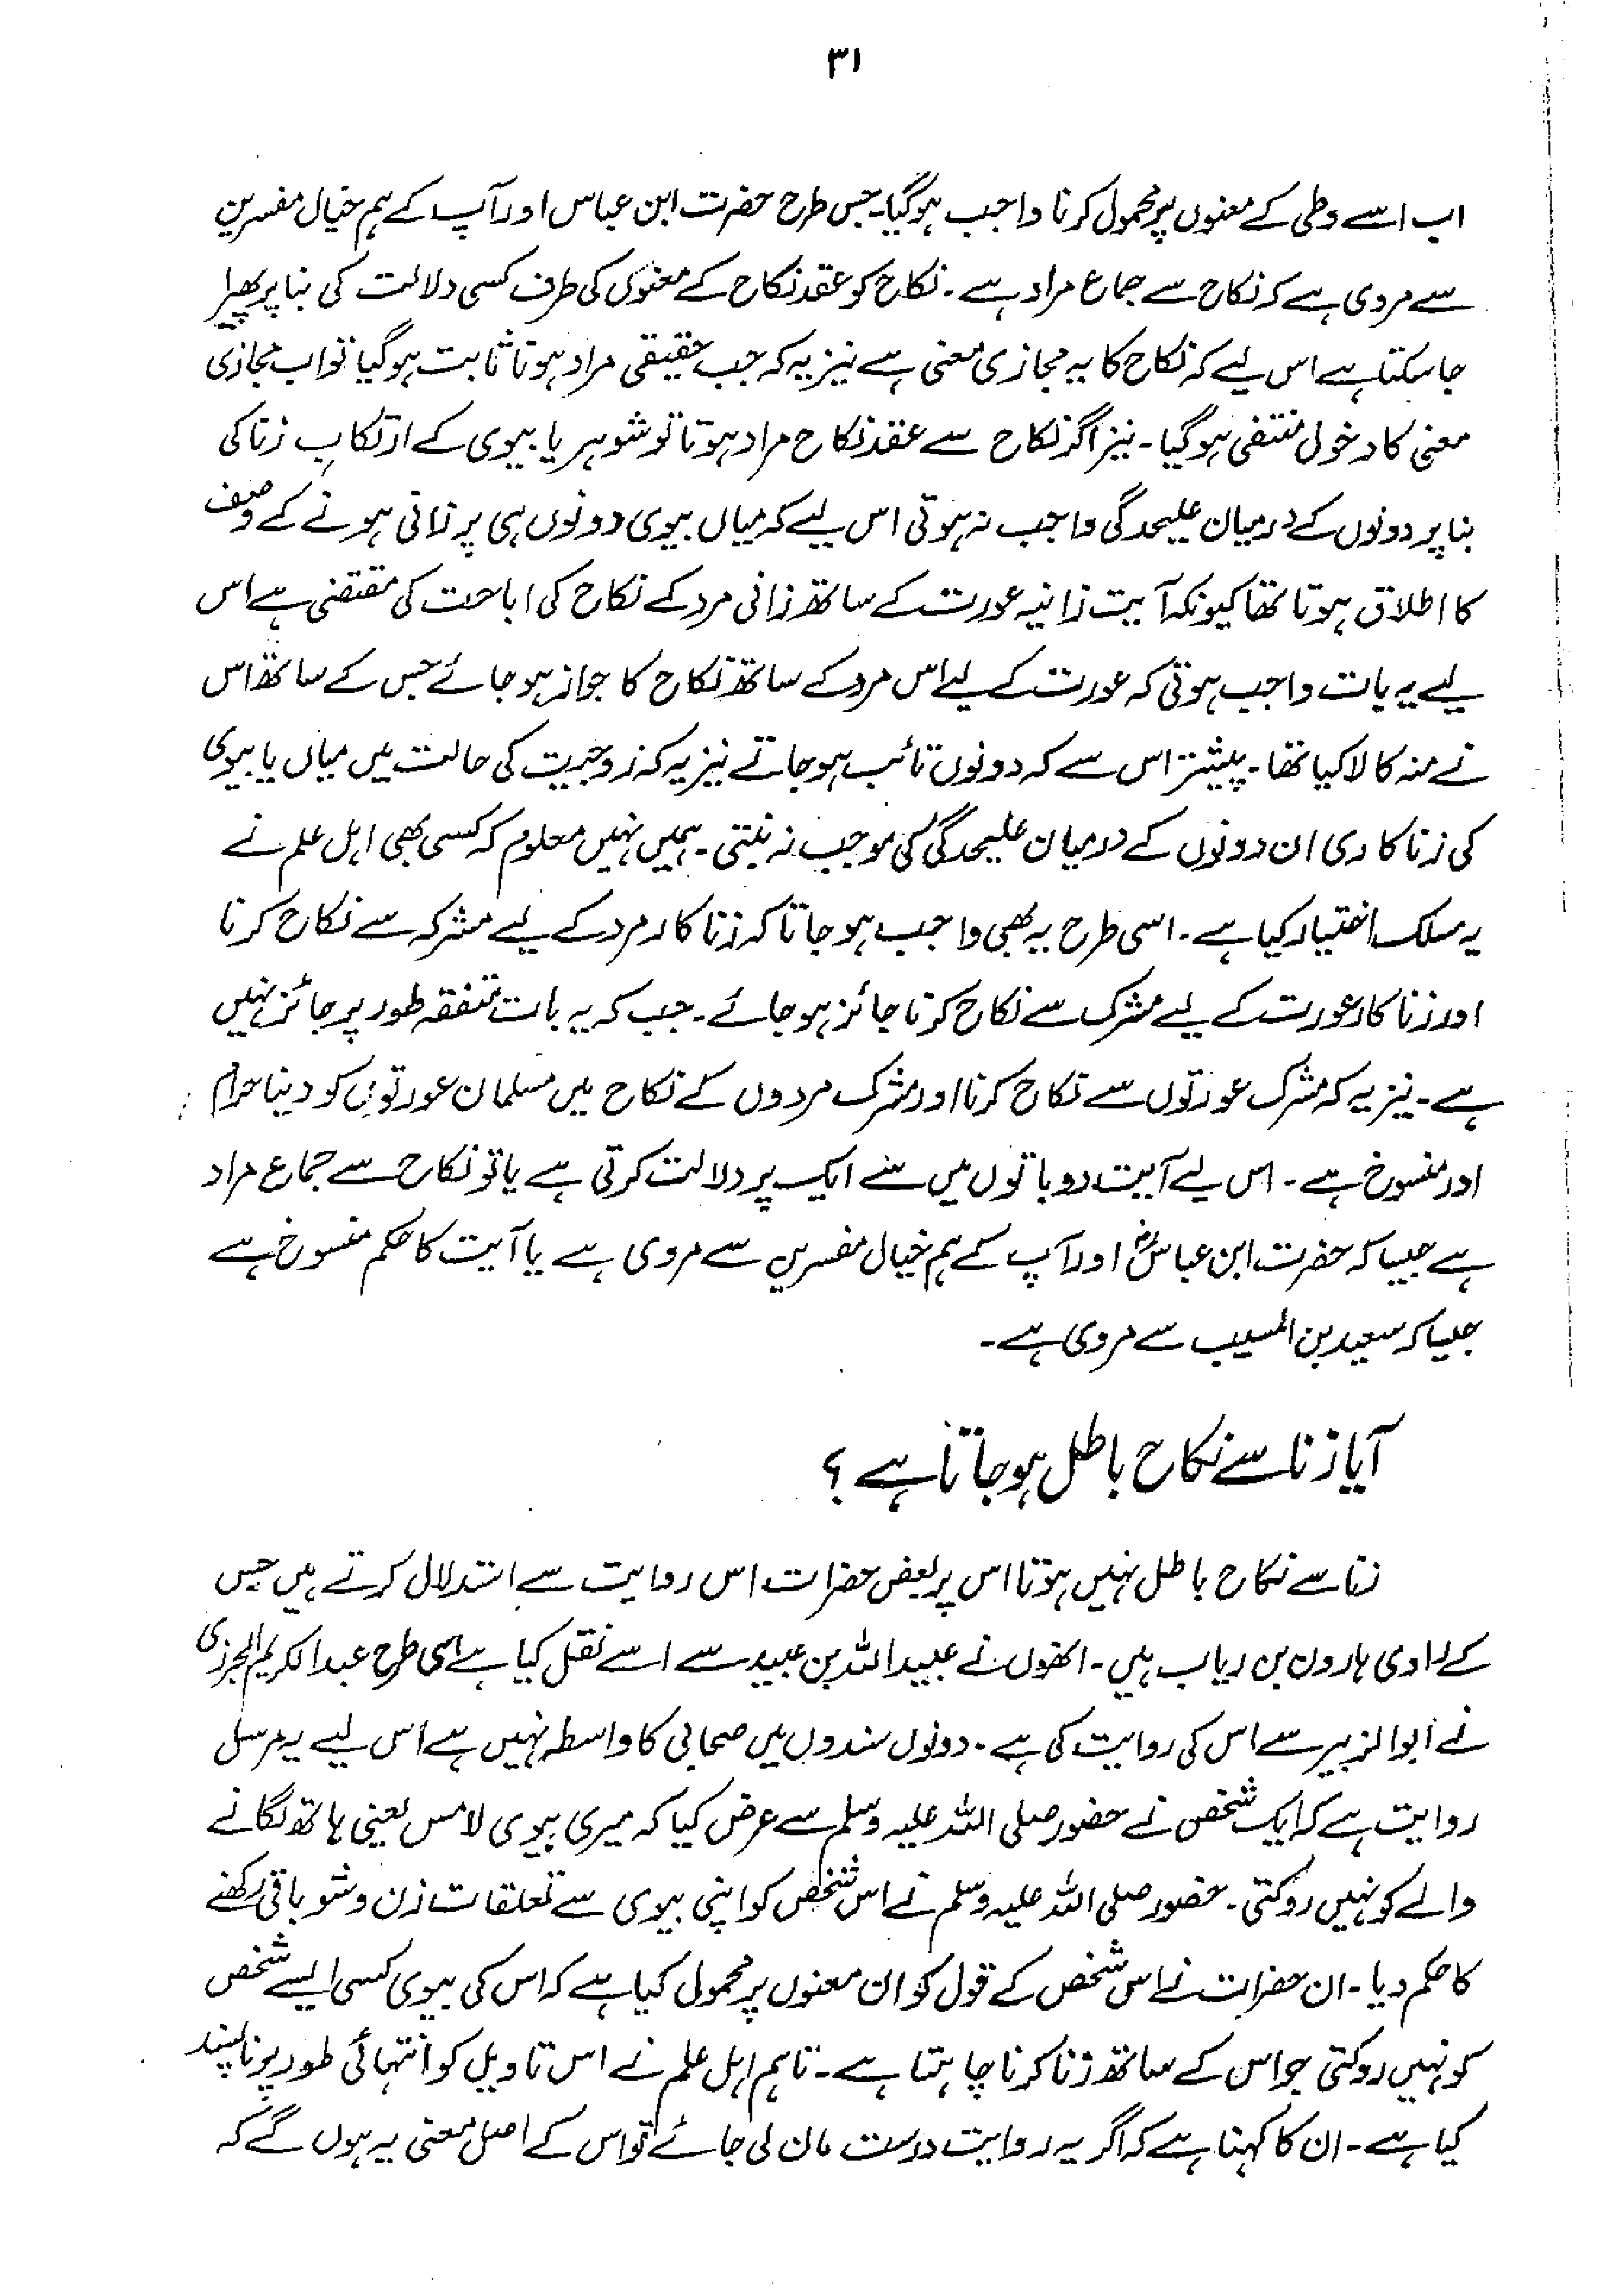 ۳۱
اب اسے وطی کے معنوں پر محمول کرنا واجب ہوگیا۔ جس طرح حضرت ابن عباس اور آپ کے ہم خیال مفسرین
سے مروی ہے کہ نکاح سے جماع مراد ہے۔ نکاح کو عقد نکاح کے معنوں کی طرف کسی دلالت کی بنا پر پھیرا
جاسکتا ہے اس لیے کہ نکاح کا یہ مجازی معنی ہے نیز یہ کہ جب حقیقی مراد ہونا ثابت ہوگیا تو اب مجازی
معنی کا دخول منتفی ہوگیا۔ نیز اگر نکاح سے عقد نکاح مراد ہوتا تو شوہر یا بیوی کے ارتکاب زنا کی
بنا پر دونوں کے درمیان علیحدگی واجب نہ ہوتی اس لیے کہ میاں بیوی دونوں ہی پر زانی ہونے کے وصف
کا اطلاق ہوتا تھا کیونکہ آیت زانیہ عورت کے ساتھ زانی مرد کے نکاح کی اباحت کی مقتضی ہے اس
لیے یہ بات واجب ہوتی کہ عورت کے لیے اس مرد کے ساتھ نکاح کا جواز ہوجائے جس کے ساتھ اس
نے منہ کالا کیا تھا۔ پیشتر اس سے کہ دونوں تائب ہوجاتے نیز یہ کہ زوجیت کی حالت میں میاں یا بیوی
کی زنا کاری ان دونوں کے درمیان علیحدگی کی موجب نہ بنتی۔ ہمیں نہیں معلوم کہ کسی بھی اہل علم نے
یہ مسلک اختیار کیا ہے۔ اسی طرح یہ بھی واجب ہوجاتا کہ زنا کار مرد کے لیے مشرکہ سے نکاح کرنا
اور زنا کار عورت کے لیے مشرک سے نکاح کرنا جائز ہوجائے۔ جب کہ یہ بات متفقہ طور پر جائز نہیں
ہے۔ نیز یہ کہ مشرک عورتوں سے نکاح کرنا اور مشرک مردوں کے نکاح میں مسلمان عورتوں کو دینا حرام
اور منسوخ ہے۔ اس لیے آیت دو باتوں میں سے ایک پر دلالت کرتی ہے یا تو نکاح سے جماع مراد
ہے جیسا کہ حضرت ابن عباسؓ اور آپ کے ہم خیال مفسرین سے مروی ہے یا آیت کا حکم منسوخ ہے
جیسا کہ سعید بن المسیب سے مروی ہے۔
آیا زنا سے نکاح باطل ہوجاتا ہے؟
زنا سے نکاح باطل نہیں ہوتا اس پر بعض حضرات اس روایت سے استدلال کرتے ہیں جس
کے راوی ہارون بن ریاب ہیں۔ انھوں نے عبیداللہ بن عبید سے اسے نقل کیا ہے اسی طرح عبدالکریم الجزری
نے ابوالزبیر سے اس کی روایت کی ہے۔ دونوں سندوں میں صحابی کا واسطہ نہیں ہے اس لیے یہ مرسل
روایت ہے کہ ایک شخص نے حضور صلی اللہ علیہ وسلم سے عرض کیا کہ میری بیوی لامس یعنی ہاتھ لگانے
والے کو نہیں روکتی۔ حضور صلی اللہ علیہ وسلم نے اس شخص کو اپنی بیوی سے تعلقات زن و شو باقی رکھنے
کا حکم دیا۔ ان حضرات نے اس شخص کے قول کو ان معنوں پر محمول کیا ہے کہ اس کی بیوی کسی ایسے شخص
کو نہیں روکتی جو اس کے ساتھ زنا کرنا چاہتا ہے۔ تاہم اہل علم نے اس تاویل کو انتہائی طور پر ناپسند
کیا ہے۔ ان کا کہنا ہے کہ اگر یہ روایت درست مان لی جائے تو اس کے اصل معنی یہ ہوں گے کہ